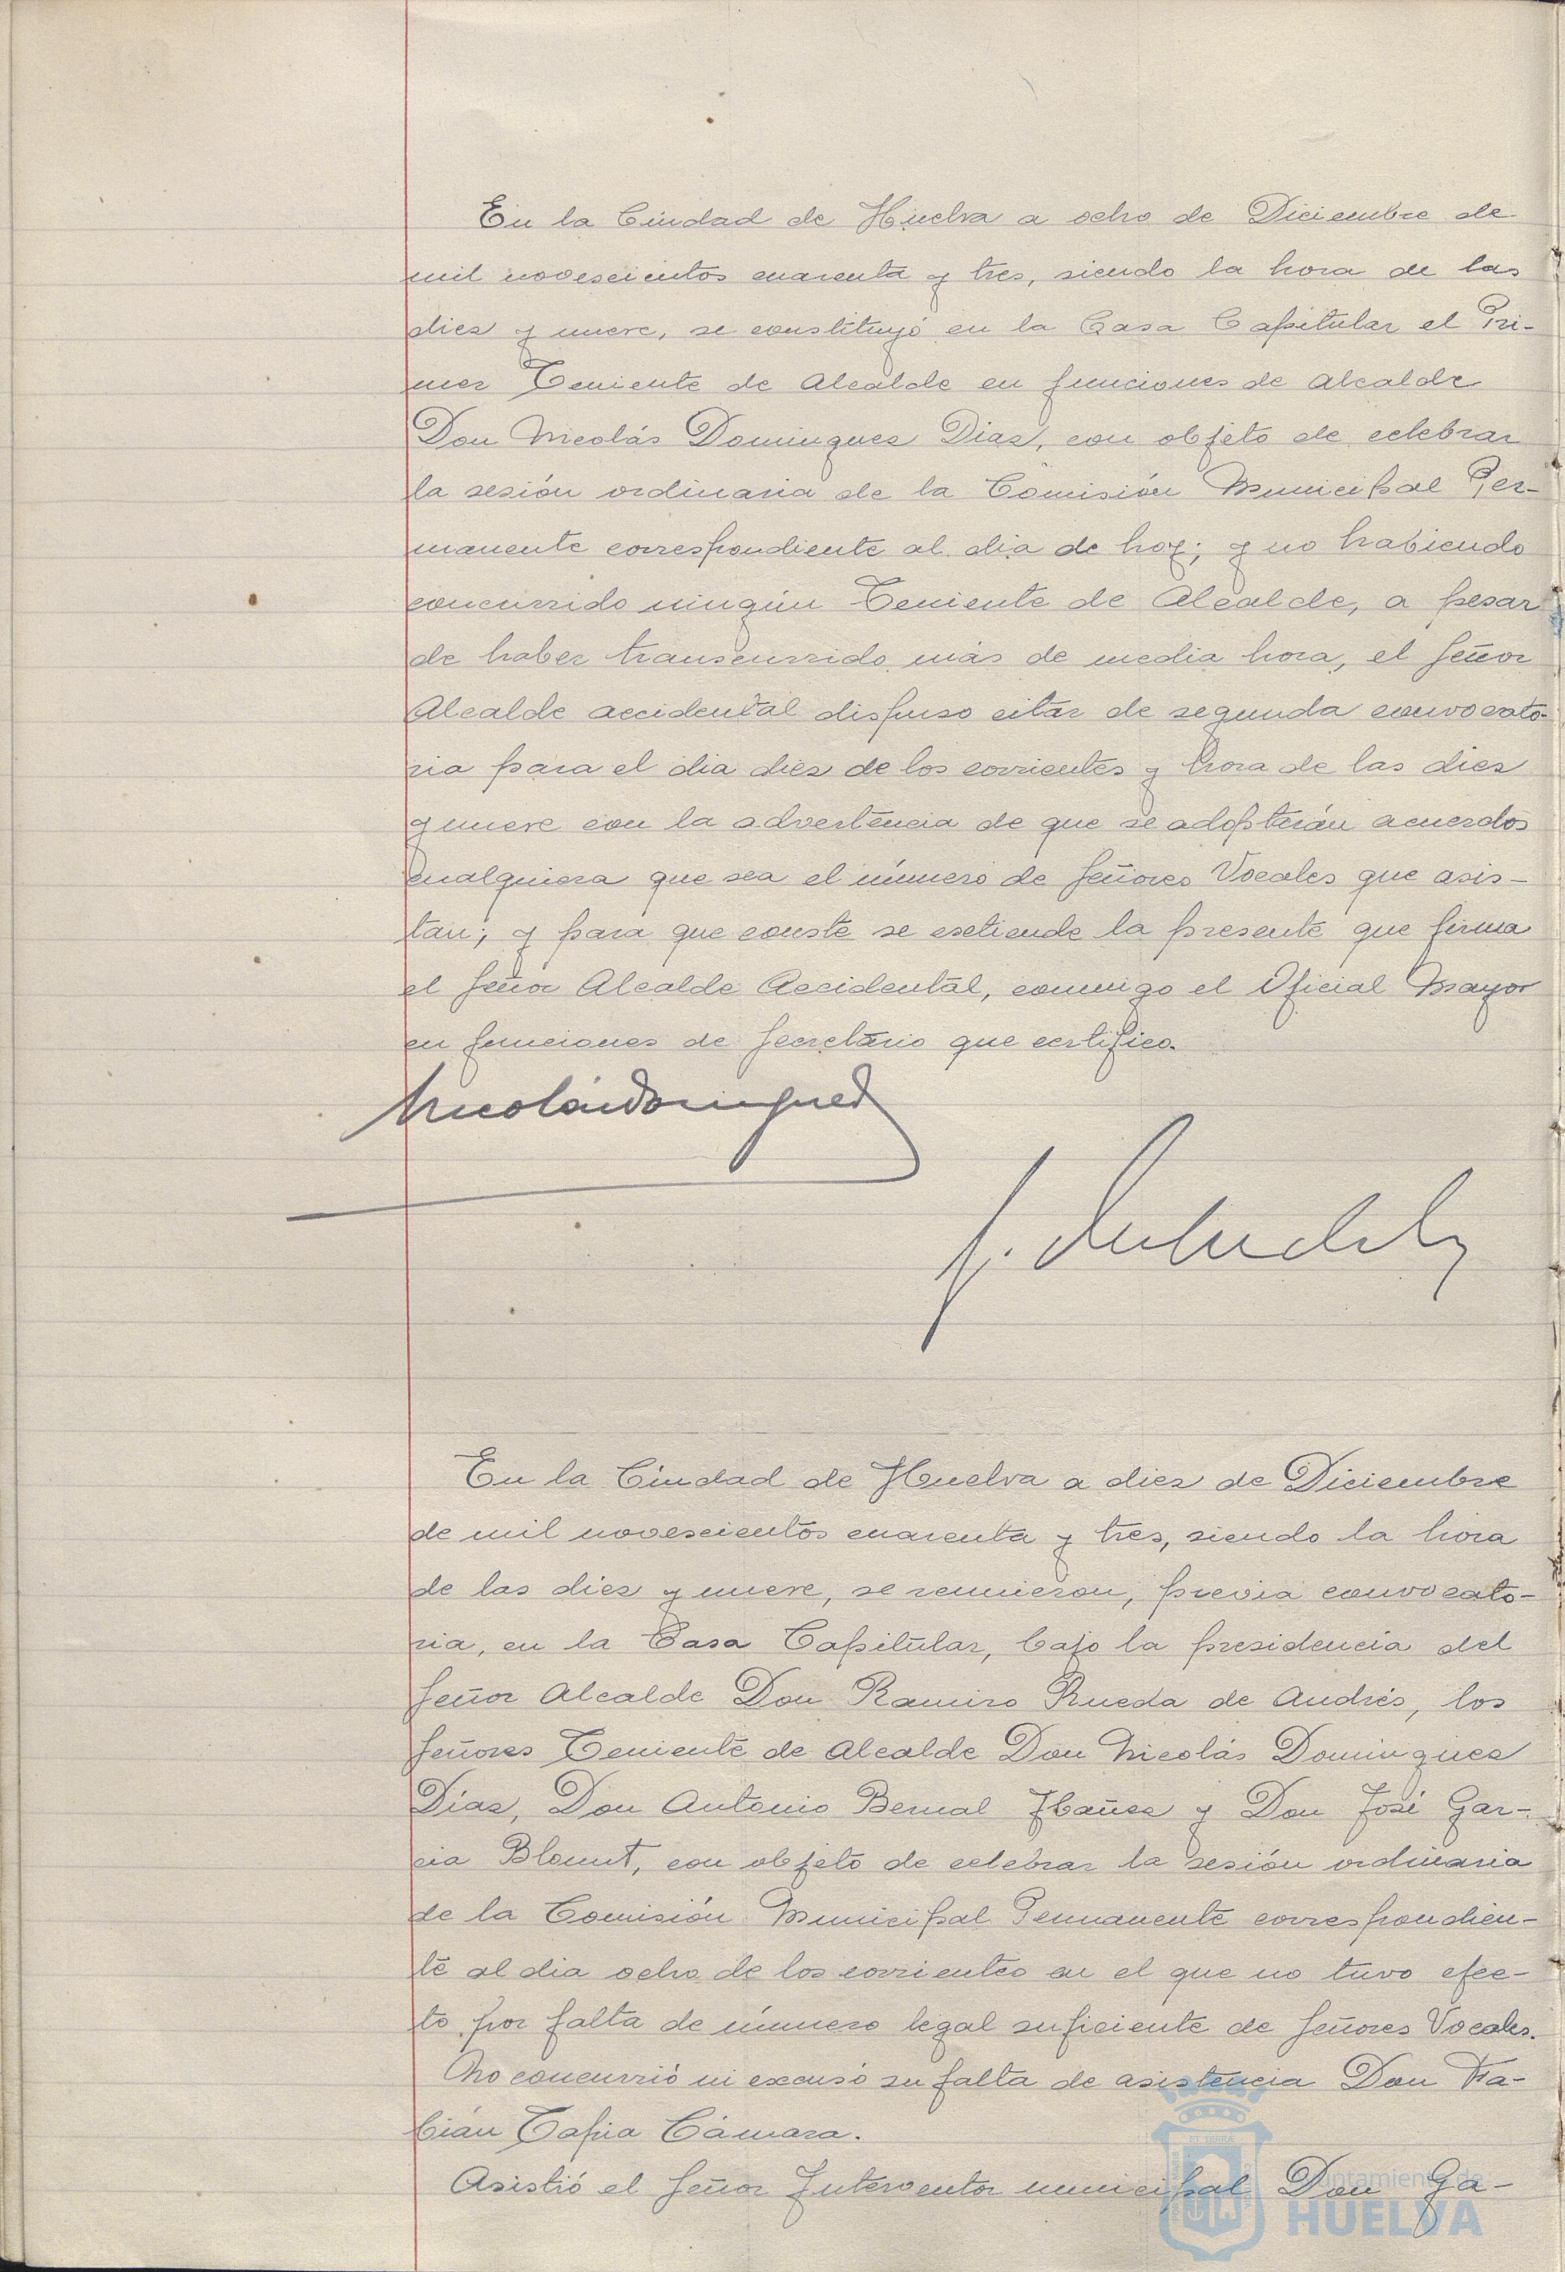 En la Ciudad de Huelva a ocho de Diciembre de
mil novescientos cuarenta y tres, siendo la hora de las
diez y nueve, se constituyó en la Casa Capitular el Pri-
mer Teniente de Alcalde en funciones de Alcalde
Don Nicolás Dominguez Diaz, con objeto de celebrar
la sesión ordinaria de la Comisión Municipal Per-
manente correspondiente al dia de hoy; y no habiendo
concurrido ningún Teniente de Alcalde, a pesar
de haber transcurrido más de media hora, el Señor
Alcalde accidental dispuso citar de segunda convocato-
ria para el dia diez de los corrientes y hora de las diez
y nueve con la advertencia de que se adoptarán acuerdos
cualquiera que sea el número de Señores Vocales que asis-
tan; y para que conste se extiende la presente que firma
el Señor Alcalde Accidental, conmigo el Oficial Mayor
en funciones de Secretario que certifico.
Nicolás Dominguez
En la Ciudad de Huelva a diez de Diciembre
de mil novescientos cuarenta y tres, siendo la hora
de las diez y nueve, se reunieron, previa convocato-
ria, en la Casa Capitular, bajo la presidencia del
Señor Alcalde Don Ramiro Rueda de Andrés, los
Señores Teniente de Alcalde Don Nicolás Dominguez
Díaz, Don Antonio Bernal Ibañez y Don José Gar-
cia Blount, con objeto de celebrar la sesión ordinaria
de la Comisión Municipal Permanente correspondien-
te al dia ocho de los corrientes en el que no tuvo efec-
to por falta de número legal suficiente de Señores Vocales.
No concurrió ni excusó su falta de asistencia Don Fa-
bián Tapia Cámara.
Asistió el Señor Interventor municipal Don Ga-
Ayuntamiento de
HUELVA